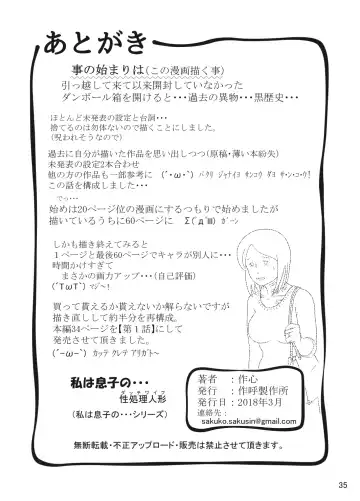 あとがき
事の始まりは(この漫画描く事)
引っ越して来て以来開封していなかった
ダンボール箱を開けると・・・過去の異物・・・黒歴史・・・
ほとんど未発表の設定と台詞・・・
捨てるのは勿体ないので描くことにしました。
(呪われそうなので)
過去に自分が描いた作品を思い出しつつ(原稿・薄い本紛失)
未発表の設定2本合わせ
他の方の作品も一部参考に (´・ω・`) パクリ ジャナイヨ サンコウ ダヨ サ・ン・コ・ウ!
この話を構成しました・・・
でっ…
始めは20ページ位の漫画にするつもりで始めましたが
描いているうちに60ページに Σ(´д`lll) ガーン
しかも描き終えてみると
1ページと最後60ページでキャラが別人に・・・
時間かけすぎて
まさかの画力アップ・・・(自己評価)
(´TωT`) マジ〜!
買って貰えるか貰えないか解らないですが
描き直しして約半分を再構成。
本編34ページを【第1話】にして
発売させて頂きました。
(´-ω-`) カッテ クレテ アリガト〜
私は息子の・・・
ダッチワイフ
性処理人形
(私は息子の・・・シリーズ)
著者 : 作心
発行 : 作呼製作所
発行日 : 2018年3月
連絡先 :
sakuko.sakusin@gmail.com
無断転載・不正アップロード・販売は禁止させて頂きます。
35